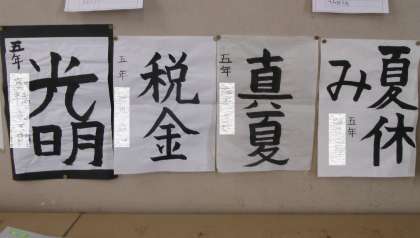 夏休み
五年
真夏
五年
税金
五年
光明
五年